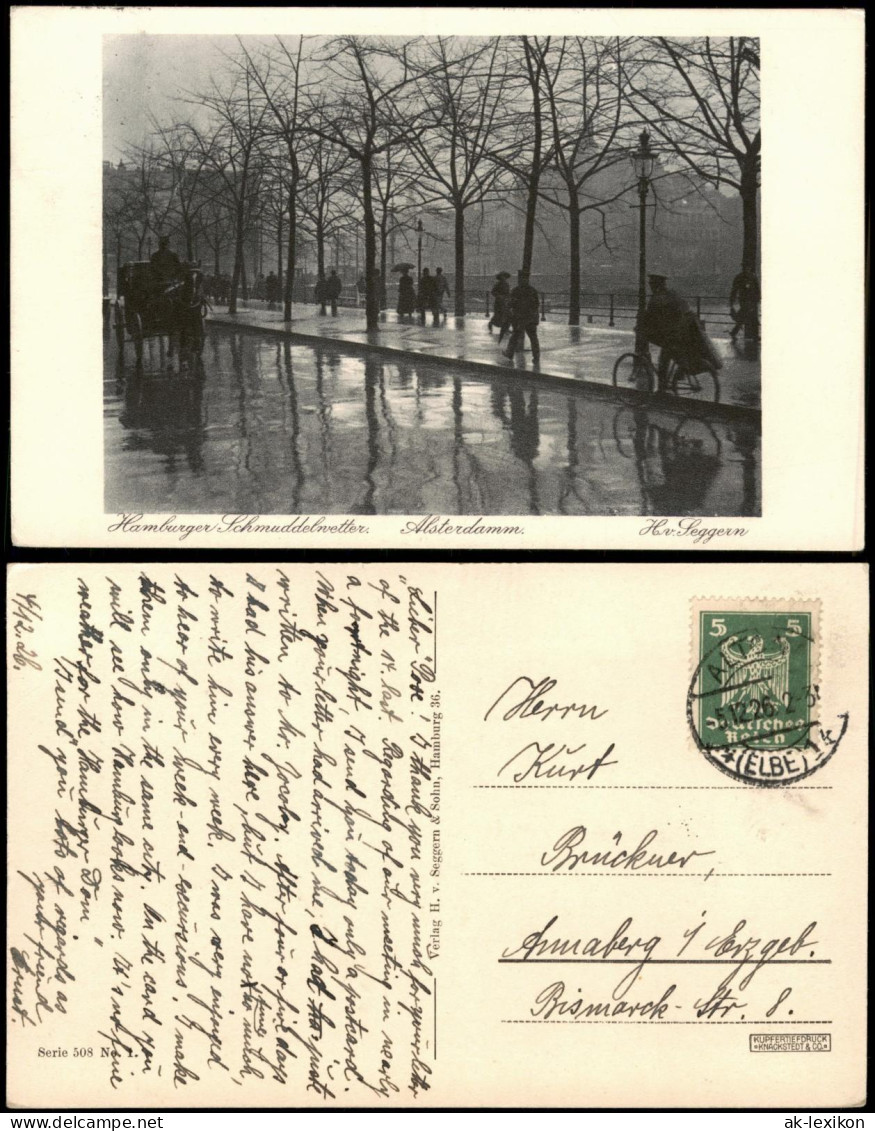 Hamburger Schmuddelwetter. Alsterdamm. H.v. Seggern
4/12.26.
"Lieber" Pore! I thank you very much for your letter
of the 14. last. Regarding of our meeting in nearly
a fortnight, I send you today only a postcard.
When your letter had arrived me, I had just
written to Mr. Jacoby. After four or five days
I had his answer here, but I have not so much time
to write him every week. I was very enjoyed
to hear of your week-end-excursions. I make
them only in the same city. On the card you
will see how Hamburg looks now. It's no fine
weather for the "Hamburger Dom"
I send you lots of regards as
your friend
Ernst.
Serie 508 No. 1.
Verlag H. v. Seggern & Sohn, Hamburg 36.
5 5
Deutsches
Reich
5.12.26. 2-3
(ELBE) 1 k
Herrn
Kurt
Brückner,
Annaberg i/Erzgeb.
Bismarck-Str. 8.
KUPFERTIEFDRUCK
KNACKSTEDT & CO.
ak-lexikon